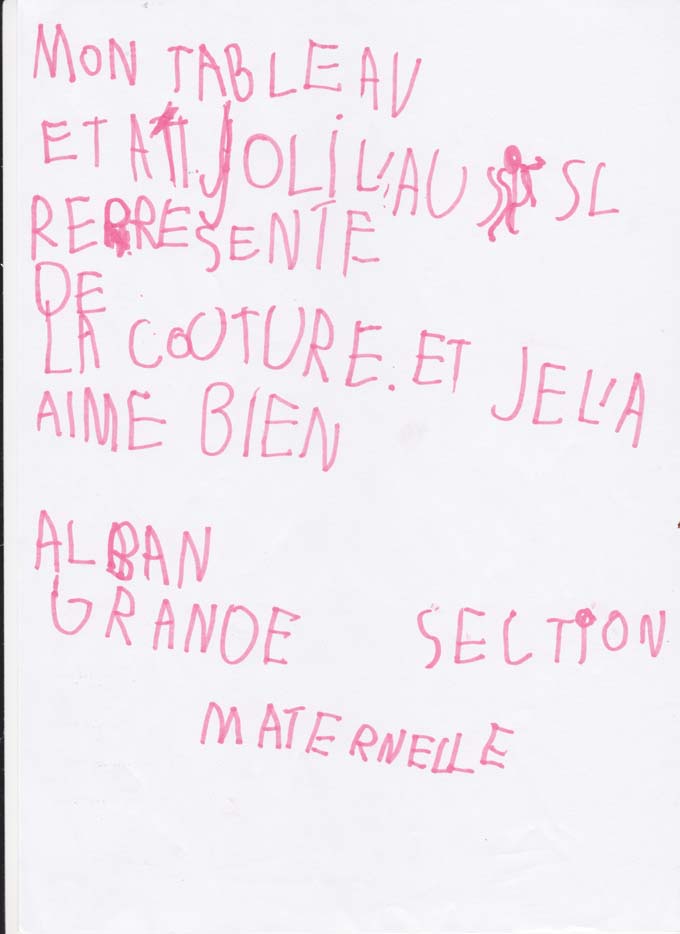 MON TABLEAU
ETAIT JOLI L'AUSSI SL
REPRESENTE
DE
LA COUTURE. ET JEL'A
AIME BIEN
ALBAN
GRANDE SECTION
MATERNELLE